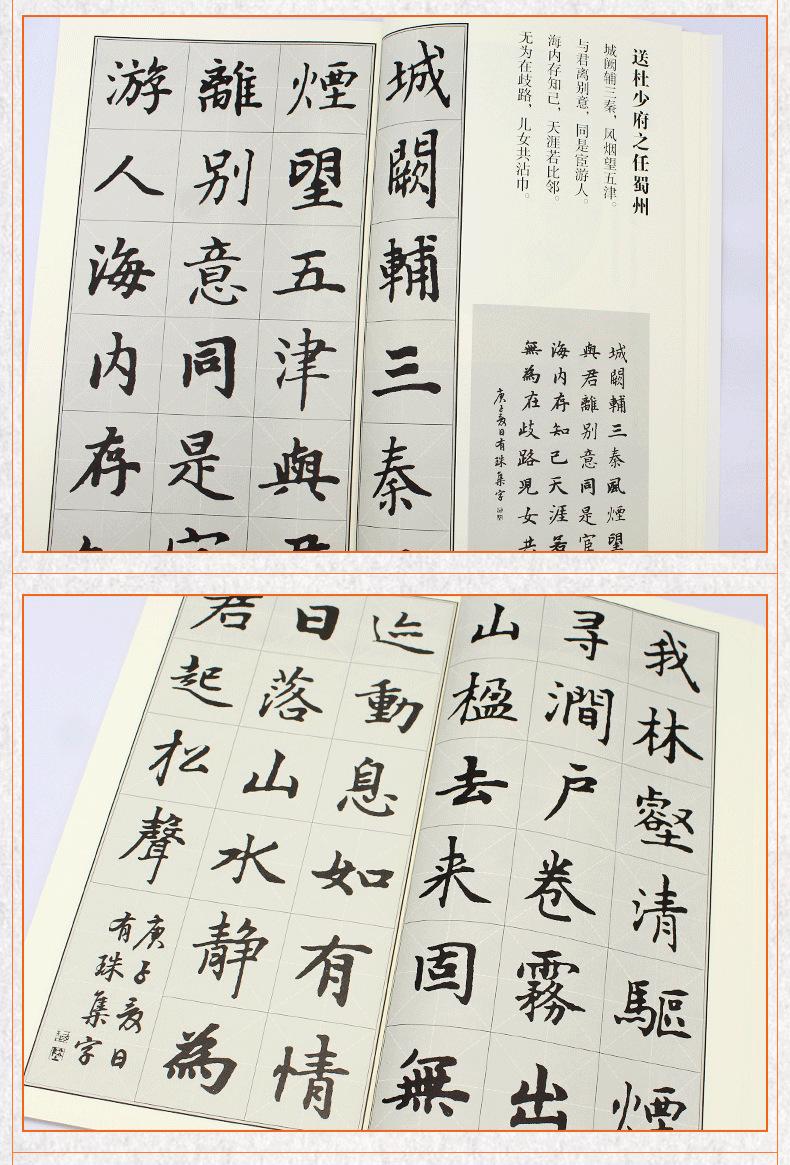 送杜少府之任蜀州
城阙辅三秦，风烟望五津。
与君离别意，同是宦游人。
海内存知己，天涯若比邻。
无为在歧路，儿女共沾巾。
城闕輔三秦風煙望
與君離别意同是宦
海内存知己天涯若
無為在歧路児女共
庚子夏日有珠集字
城闕輔三秦
煙望五津與
離别意同是
游人海内存
我林壑清驅煙
尋澗户卷霧出
山楹去来固無
迹動息如有情
日落山水静為
君起松聲
庚子夏日
有珠集字